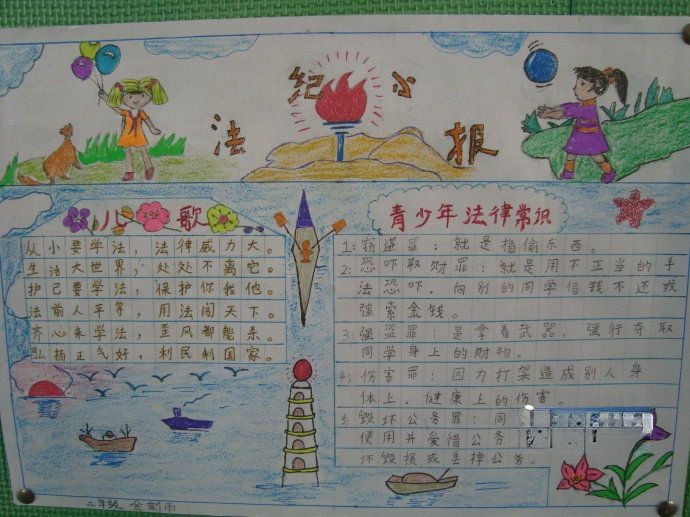 法纪小报
儿歌
从小要学法，法律威力大。
生活大世界，处处不离它。
护己要学法，保护你我他。
法前人平等，用法闯天下。
齐心来学法，歪风都能杀。
弘扬正气好，利民利国家。
青少年法律常识
1：窃盗罪：就是指偷东西。
2：恐吓取财罪：就是用不正当的手
法恐吓、向别的同学借钱不还或
强索金钱。
3：强盗罪：是拿着武器，强行夺取
同学身上的财物。
4：伤害罪：因力打架造成别人身
体上、健康上的伤害。
5：毁坏公务罪 同
使用并爱惜公务
坏毁损或丢掉公务。
二年级